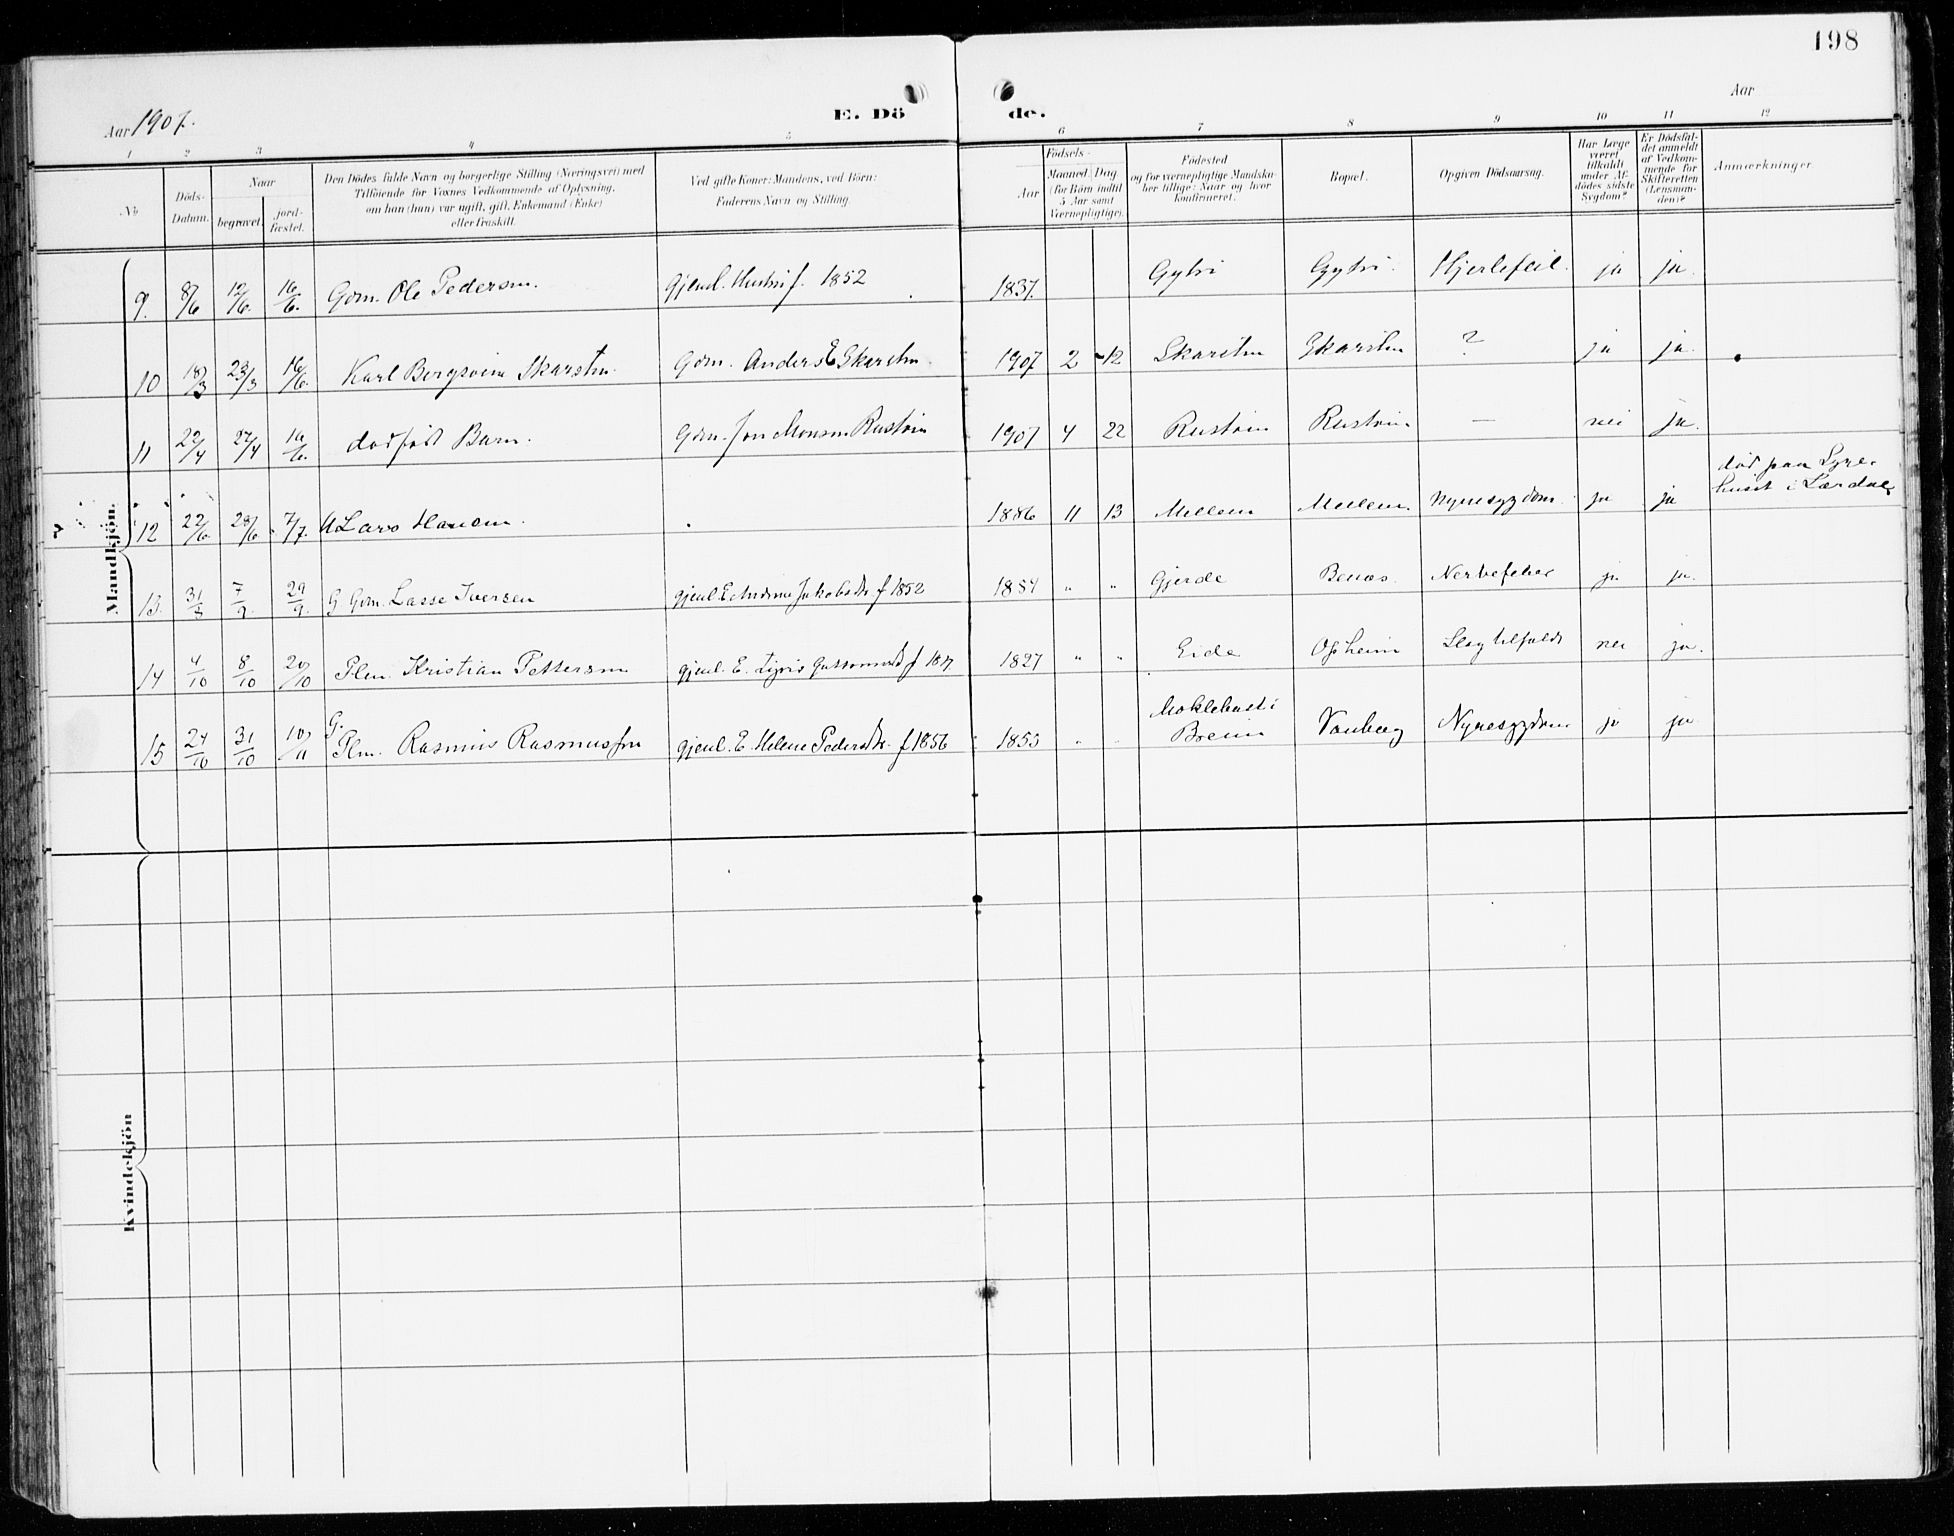 198
Aar 1907.
E. Dö de.
Aar
1 2 3 4 5 6 7 8 9 10 11 12
No
Döds-
Datum.
Naar
begravet.
jord-
fæstet.
Den Dödes fulde Navn og borgerlige Stilling (Næringsvei) med
Tilföiende for Voxnes Vedkommende af Oplysning,
om han (hun) var ugift, gift, Enkemand (Enke)
eller fraskilt.
Ved gifte Koner: Mandens, ved Börn:
Faderens Navn og Stilling.
Födsels-
Aar
Maaned. Dag.
(for Börn indtil
5 Aar samt
Værnepligtige).
Födested
og for værnepligtige Mandska-
ber tillige: Naar og hvor
konfirmeret.
Bopæl.
Opgiven Dödsaarsag.
Har Læge
været
tilkaldt
under Af-
dödes sidste
Sygdom?
Er Dödsfal-
det anmeldt
af Vedkom-
mende for
Skifteretten
(Lensman-
den)?
Anmærkninger
Mandkjön.
9. 8/6 12/6. 16/6. Gdm. Ole Pedersen. gjenl. Hustru f. 1852 1837. Gytri Gytri. Hjertefeil. ja ja.
10 18/3 23/3 16/6. Karl Bergsvein Skarsten. Gdm. Anders E Skarsten 1907 2 12 Skarsten Skarsten ? ja ja.
11 22/4 27/4 16/6. dødfødt Barn. Gdm. Jon Monsen Rustøin 1907 4 22 Rustøin Rustøin — nei ja.
12 22/6 28/6 7/7. U Lars Hansen. 1886 11 13 Mellem Mellem. Nyresygdom. ja ja
død paa Syge-
huset i Lærdal
13. 31/8 7/9. 29/9. G Gdm. Lasse Iversen gjenl. E. Jakobsdr. f 1852 1854 " " Gjerde Benæs. Nervefeber ja ja.
14 4/10 8/10 20/10 Plm. Kristian Pettersen gjenl. E. f 1817 1827 " " Eide Opheim Slagtilfælde nei ja.
15 24/10 31/10 10/11 G. Plm. Rasmus Rasmussen gjenl. E. Helene Pedersdr. f 1856 1855 " "
Moklebust i
Breim
Vanberg Nyresygdom ja ja
Kvindekjön